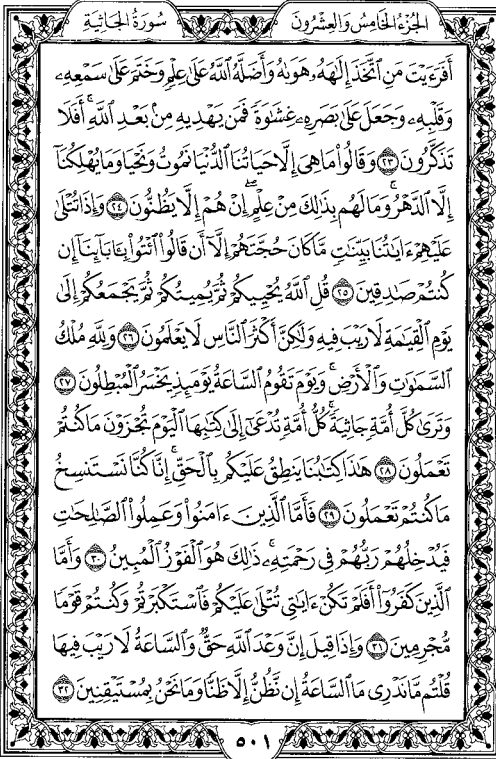 سُورَةُ الجَاثِيَةِ
الجُزْءُ الخَامِسُ وَالعِشْرُونَ
أَفَرَءَيْتَ مَنِ ٱتَّخَذَ إِلَٰهَهُۥ هَوَىٰهُ وَأَضَلَّهُ ٱللَّهُ عَلَىٰ عِلْمٍ وَخَتَمَ عَلَىٰ سَمْعِهِۦ
وَقَلْبِهِۦ وَجَعَلَ عَلَىٰ بَصَرِهِۦ غِشَٰوَةً فَمَن يَهْدِيهِ مِنۢ بَعْدِ ٱللَّهِ ۚ أَفَلَا
تَذَكَّرُونَ ٢٣ وَقَالُوا۟ مَا هِىَ إِلَّا حَيَاتُنَا ٱلدُّنْيَا نَمُوتُ وَنَحْيَا وَمَا يُهْلِكُنَآ
إِلَّا ٱلدَّهْرُ ۚ وَمَا لَهُم بِذَٰلِكَ مِنْ عِلْمٍ ۖ إِنْ هُمْ إِلَّا يَظُنُّونَ ٢٤ وَإِذَا تُتْلَىٰ
عَلَيْهِمْ ءَايَٰتُنَا بَيِّنَٰتٍ مَّا كَانَ حُجَّتَهُمْ إِلَّآ أَن قَالُوا۟ ٱئْتُوا۟ بِـَٔابَآئِنَآ إِن
كُنتُمْ صَٰدِقِينَ ٢٥ قُلِ ٱللَّهُ يُحْيِيكُمْ ثُمَّ يُمِيتُكُمْ ثُمَّ يَجْمَعُكُمْ إِلَىٰ
يَوْمِ ٱلْقِيَٰمَةِ لَا رَيْبَ فِيهِ وَلَٰكِنَّ أَكْثَرَ ٱلنَّاسِ لَا يَعْلَمُونَ ٢٦ وَلِلَّهِ مُلْكُ
ٱلسَّمَٰوَٰتِ وَٱلْأَرْضِ ۚ وَيَوْمَ تَقُومُ ٱلسَّاعَةُ يَوْمَئِذٍ يَخْسَرُ ٱلْمُبْطِلُونَ ٢٧
وَتَرَىٰ كُلَّ أُمَّةٍ جَاثِيَةً ۚ كُلُّ أُمَّةٍ تُدْعَىٰٓ إِلَىٰ كِتَٰبِهَا ٱلْيَوْمَ تُجْزَوْنَ مَا كُنتُمْ
تَعْمَلُونَ ٢٨ هَٰذَا كِتَٰبُنَا يَنطِقُ عَلَيْكُم بِٱلْحَقِّ ۚ إِنَّا كُنَّا نَسْتَنسِخُ
مَا كُنتُمْ تَعْمَلُونَ ٢٩ فَأَمَّا ٱلَّذِينَ ءَامَنُوا۟ وَعَمِلُوا۟ ٱلصَّٰلِحَٰتِ
فَيُدْخِلُهُمْ رَبُّهُمْ فِى رَحْمَتِهِۦ ۚ ذَٰلِكَ هُوَ ٱلْفَوْزُ ٱلْمُبِينُ ٣٠ وَأَمَّا
ٱلَّذِينَ كَفَرُوٓا۟ أَفَلَمْ تَكُنْ ءَايَٰتِى تُتْلَىٰ عَلَيْكُمْ فَٱسْتَكْبَرْتُمْ وَكُنتُمْ قَوْمًا
مُّجْرِمِينَ ٣١ وَإِذَا قِيلَ إِنَّ وَعْدَ ٱللَّهِ حَقٌّ وَٱلسَّاعَةُ لَا رَيْبَ فِيهَا
قُلْتُم مَّا نَدْرِى مَا ٱلسَّاعَةُ إِن نَّظُنُّ إِلَّا ظَنًّا وَمَا نَحْنُ بِمُسْتَيْقِنِينَ ٣٢
٥٠١